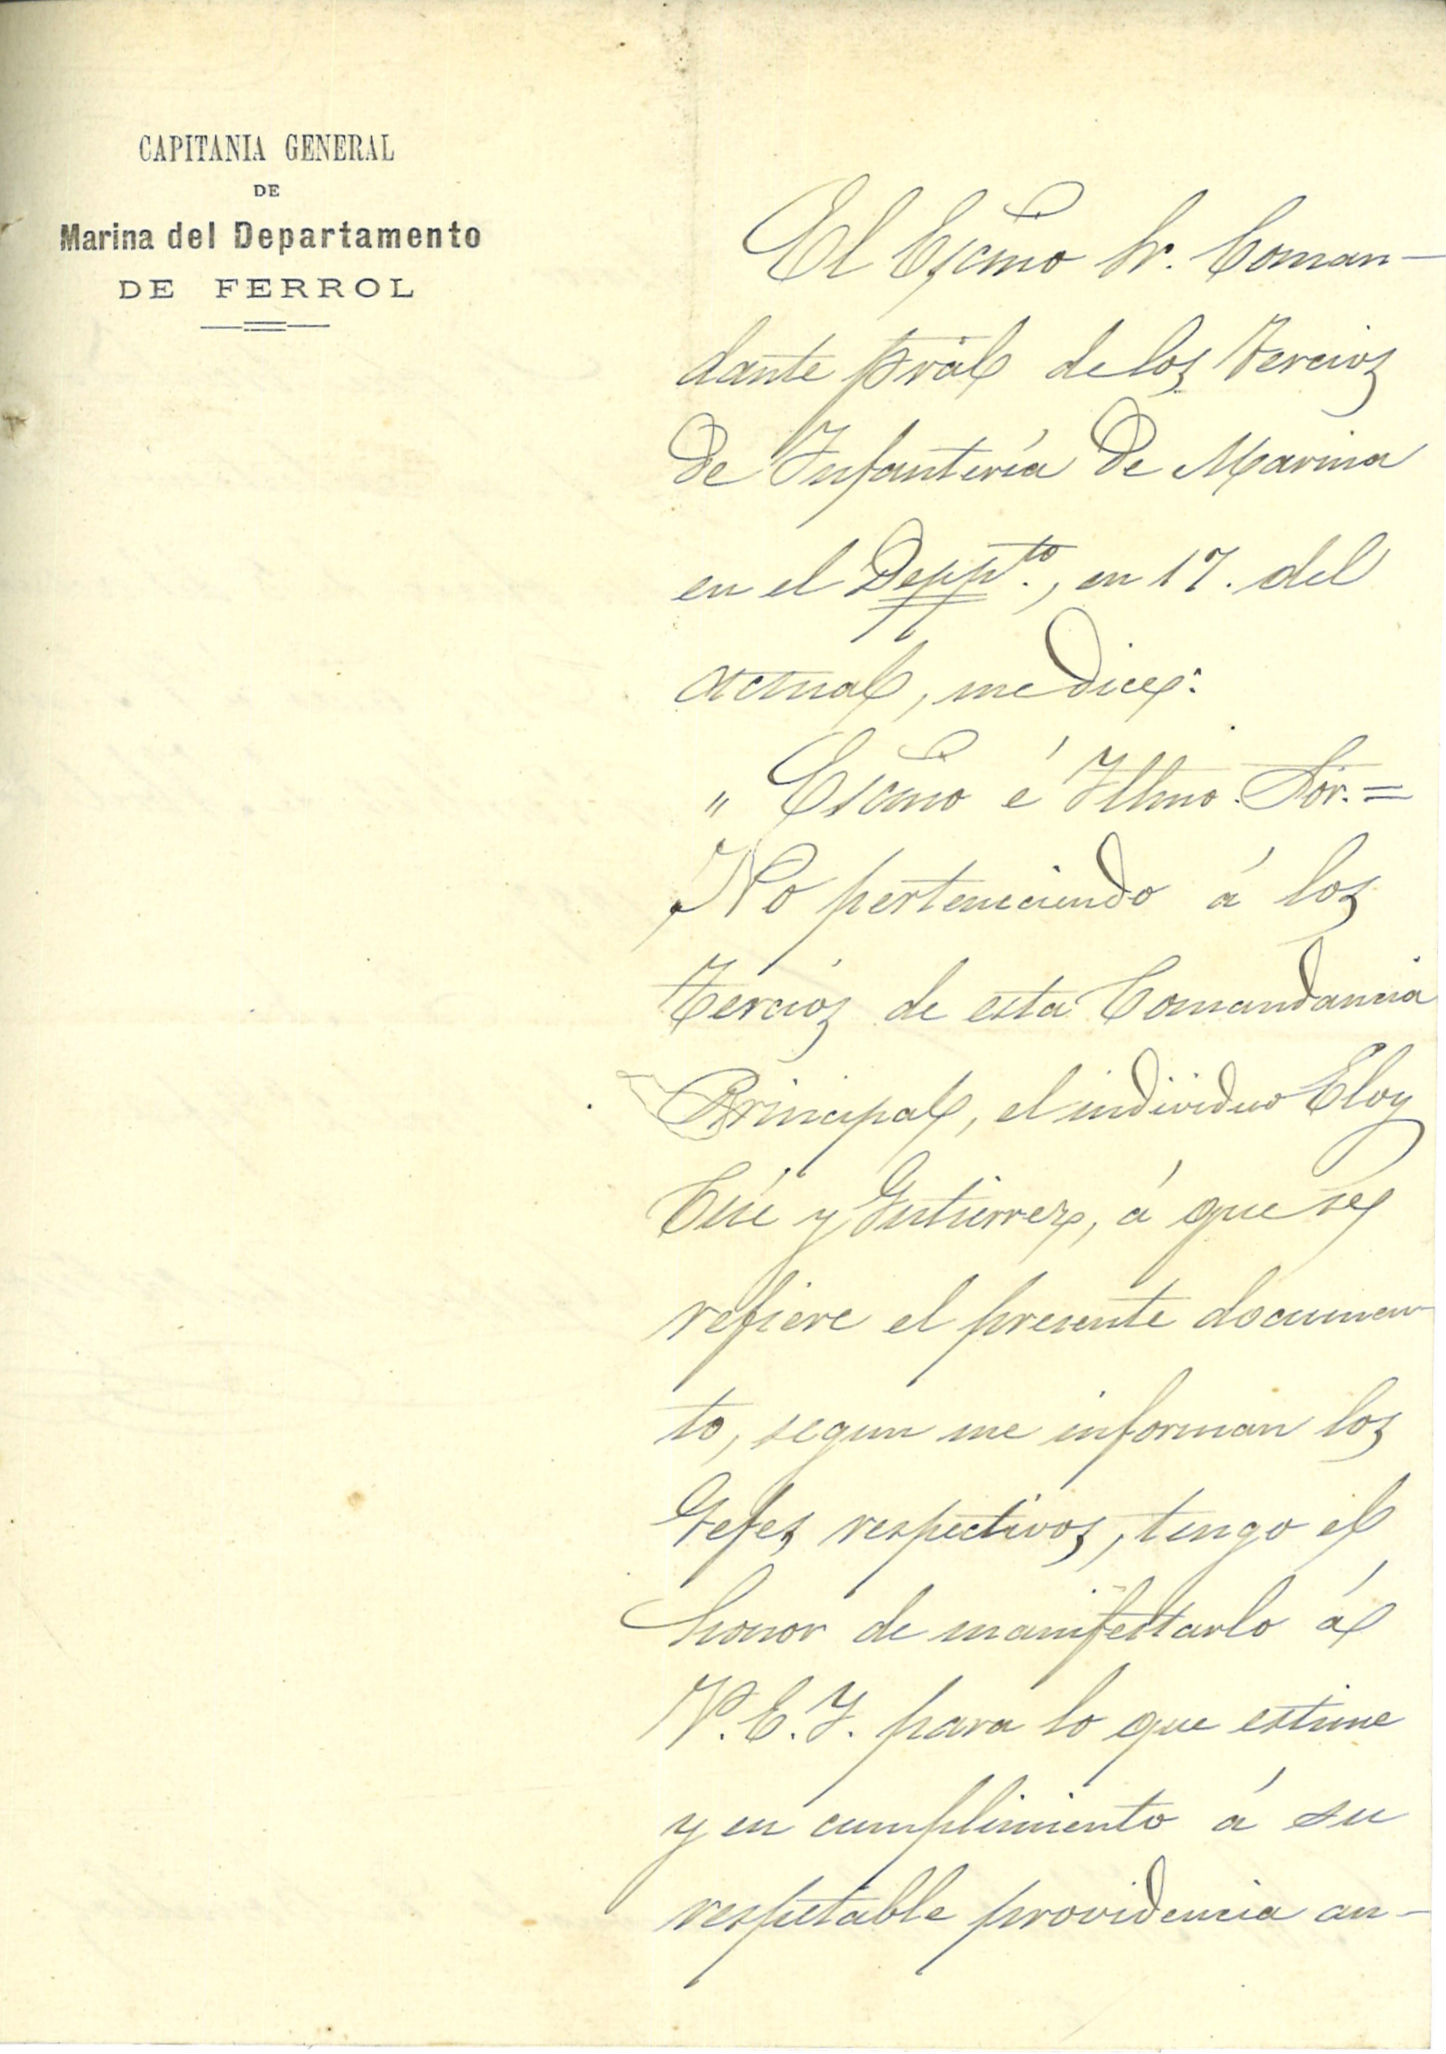 CAPITANIA GENERAL
DE
Marina del Departamento
DE FERROL
El Escmo Sr. Coman-
dante pral de los Tercios
de Infantería de Marina
en el Depp.to, en 17. del
actual, me dice:
" Escmo é Illmo. Sör. =
No perteneciendo á los
Tercios de esta Comandancia
Principal, el individuo Eloy
y Gutierrez, á que se
refiere el presente documen-
to, segun me informan los
Gefes respectivos, tengo el
honor de manifestarlo á
V. E. Y. para lo que estime
y en cumplimiento á su
respetable providencia an-